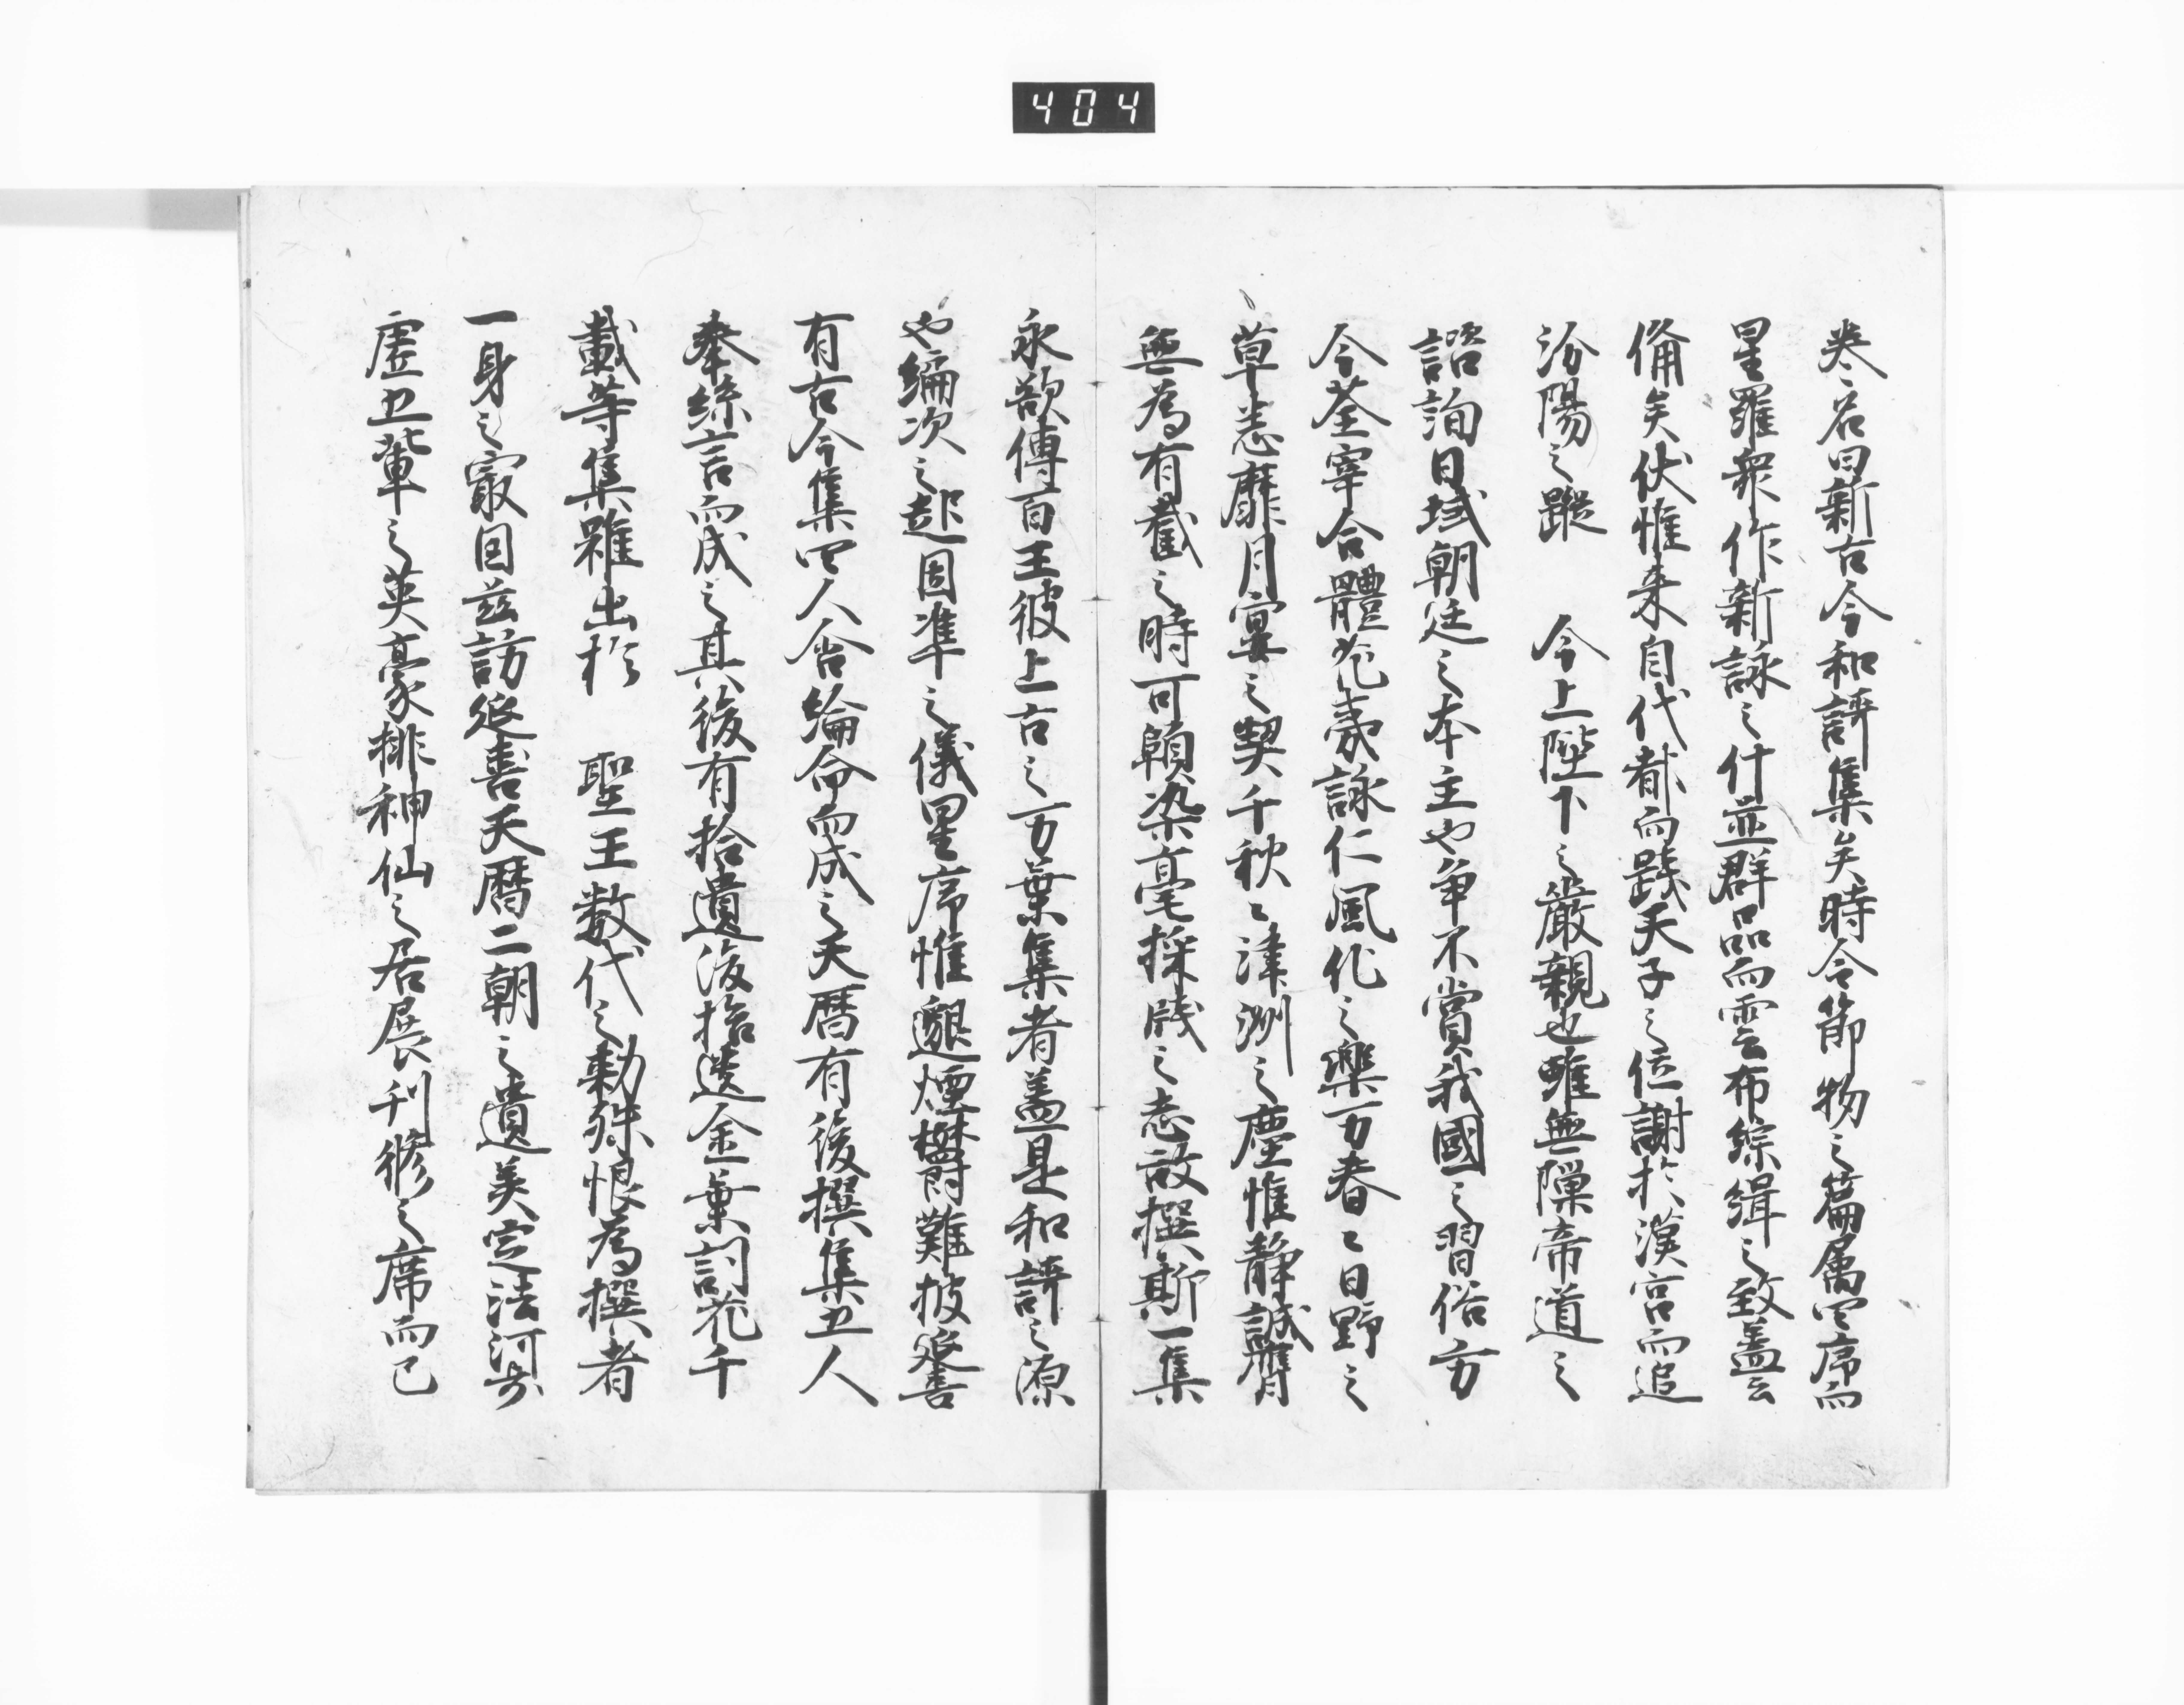 404
巻名曰新古今和謌集矣時令節物之篇属四序而
星羅衆作新詠之什並群品而雲布綜緝之致盖云
備矣伏惟来自代邸而踐天子之位謝於漢宮而追
汾陽之蹤 今上陛下之嚴親也雖無隟帝道之
諮詢日域朝廷之本主也争不賞我國之習俗方
今荃宰合體花夷詠仁風化之樂万春々日野之
草悉靡月宴之契千秋々津洲之塵惟静誠膺
無為有截之時可頤染毫採牋之志故撰斯一集
永欲傳百王彼上古之万葉集者盖是和謌之源
也編次之起因准之儀星序惟邈煙欝難披延喜
有古今集四人含綸命而成之天暦有後撰集五人
奉絲言而成之其後有拾遺後拾遺金葉詞花千
載等集雖出於 聖王数代之勅殊恨為撰者
一身之最因茲訪延喜天暦二朝之遺美定法河歩
虚五輩之英豪排神仙之居展刊修之席而已